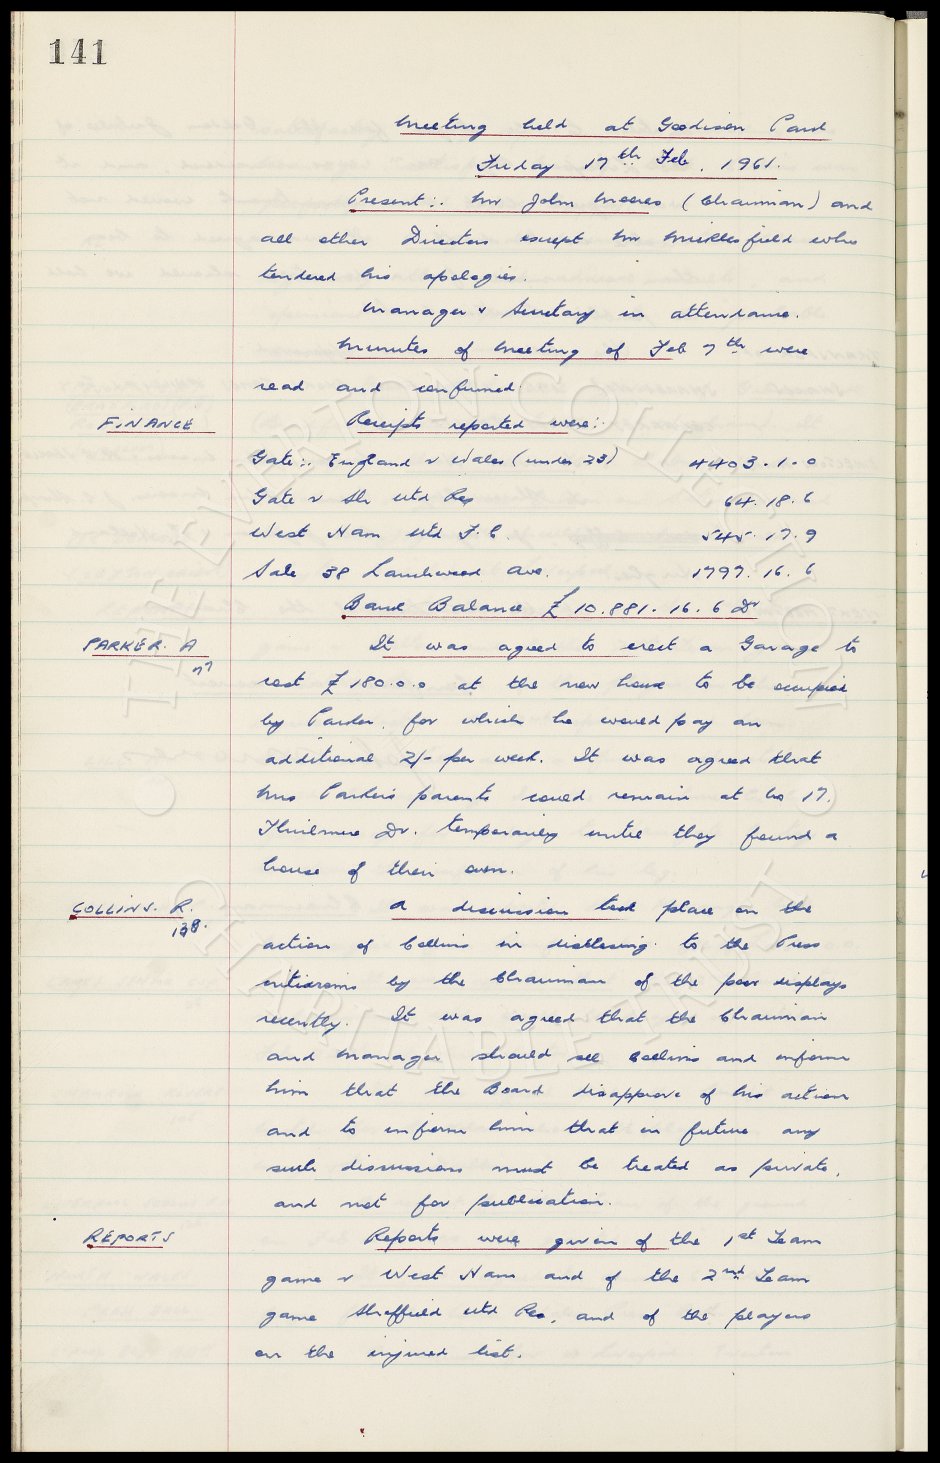 141
Meeting held at Goodison Park
Friday 17th Feb. 1961.
Present:. Mr John Moores (Chairman) and
all other Directors except Mr Micklesfield who
tendered his apologies.
Manager & Secretary in attendance.
Minutes of Meeting of Feb 7th were
read and confirmed.
FINANCE
Receipts reported were:.
Gate:. England v Wales (under 23) 4403.1.0
Gate v Sh Utd Res 64.18.6
West Ham Utd F.C. 545.17.9
Sale 38 Ave. 1797.16.6
Bank Balance £10.881.16.6 Dr
PARKER. A
77
It was agreed to erect a Garage to
cost £180.0.0 at the new house to be occupied
by Parker, for which he would pay an
additional 2/- per week. It was agreed that
Mrs Parker's parents could remain at No 17.
Thirlmere Dr. temporarily until they found a
house of their own.
COLLINS. R.
138.
A discussion took place on the
action of Collins in disclosing to the Press
criticisms by the Chairman of the poor displays
recently. It was agreed that the Chairman
and Manager should see Collins and inform
him that the Board disapprove of his action
and to inform him that in future any
such discussions must be treated as private,
and not for publication.
REPORTS
Reports were given of the 1st Team
game v West Ham and of the 2nd Team
game Sheffield Utd Res, and of the players
on the injured list.
THE EVERTON COLLECTION
CHARITABLE TRUST